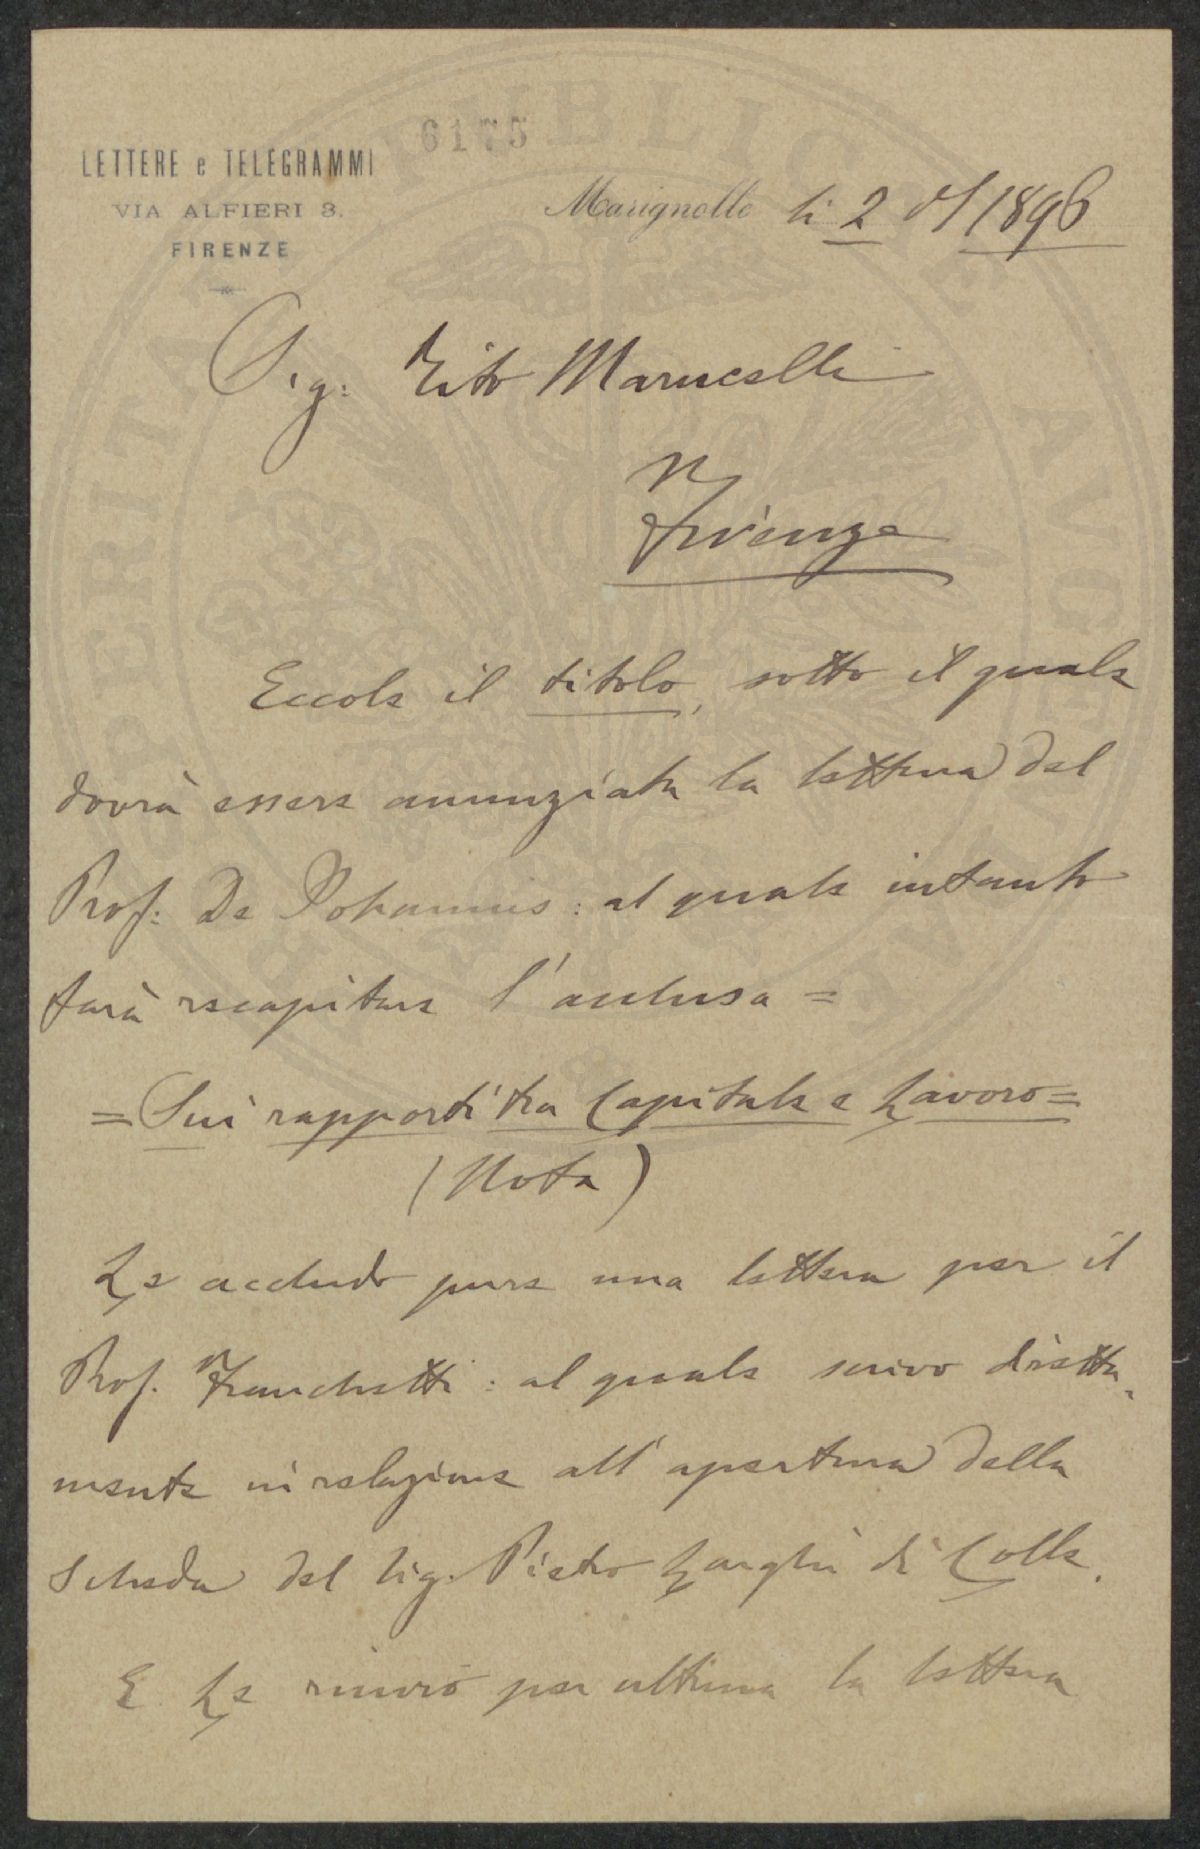 6175
LETTERE e TELEGRAMMI
VIA ALFIERI 3.
FIRENZE
Marignolle li 2 1896
Sig: Tito Marucelli
Firenze
Eccole il titolo, sotto il quale
dovrà essere annunziata la lettura del
Prof: De Johannis: al quale intanto
farà recapitare l'acclusa =
= Sui rapporti tra Capitale e Lavoro =
(Nota)
Le accludo pure una lettera per il
Prof. Franchetti: al quale scrivo diretta„
mente in relazione all'apertura della
Scheda del Sig. Pietro Larghi di Colle.
E Le rinvio per ultimo la lettera